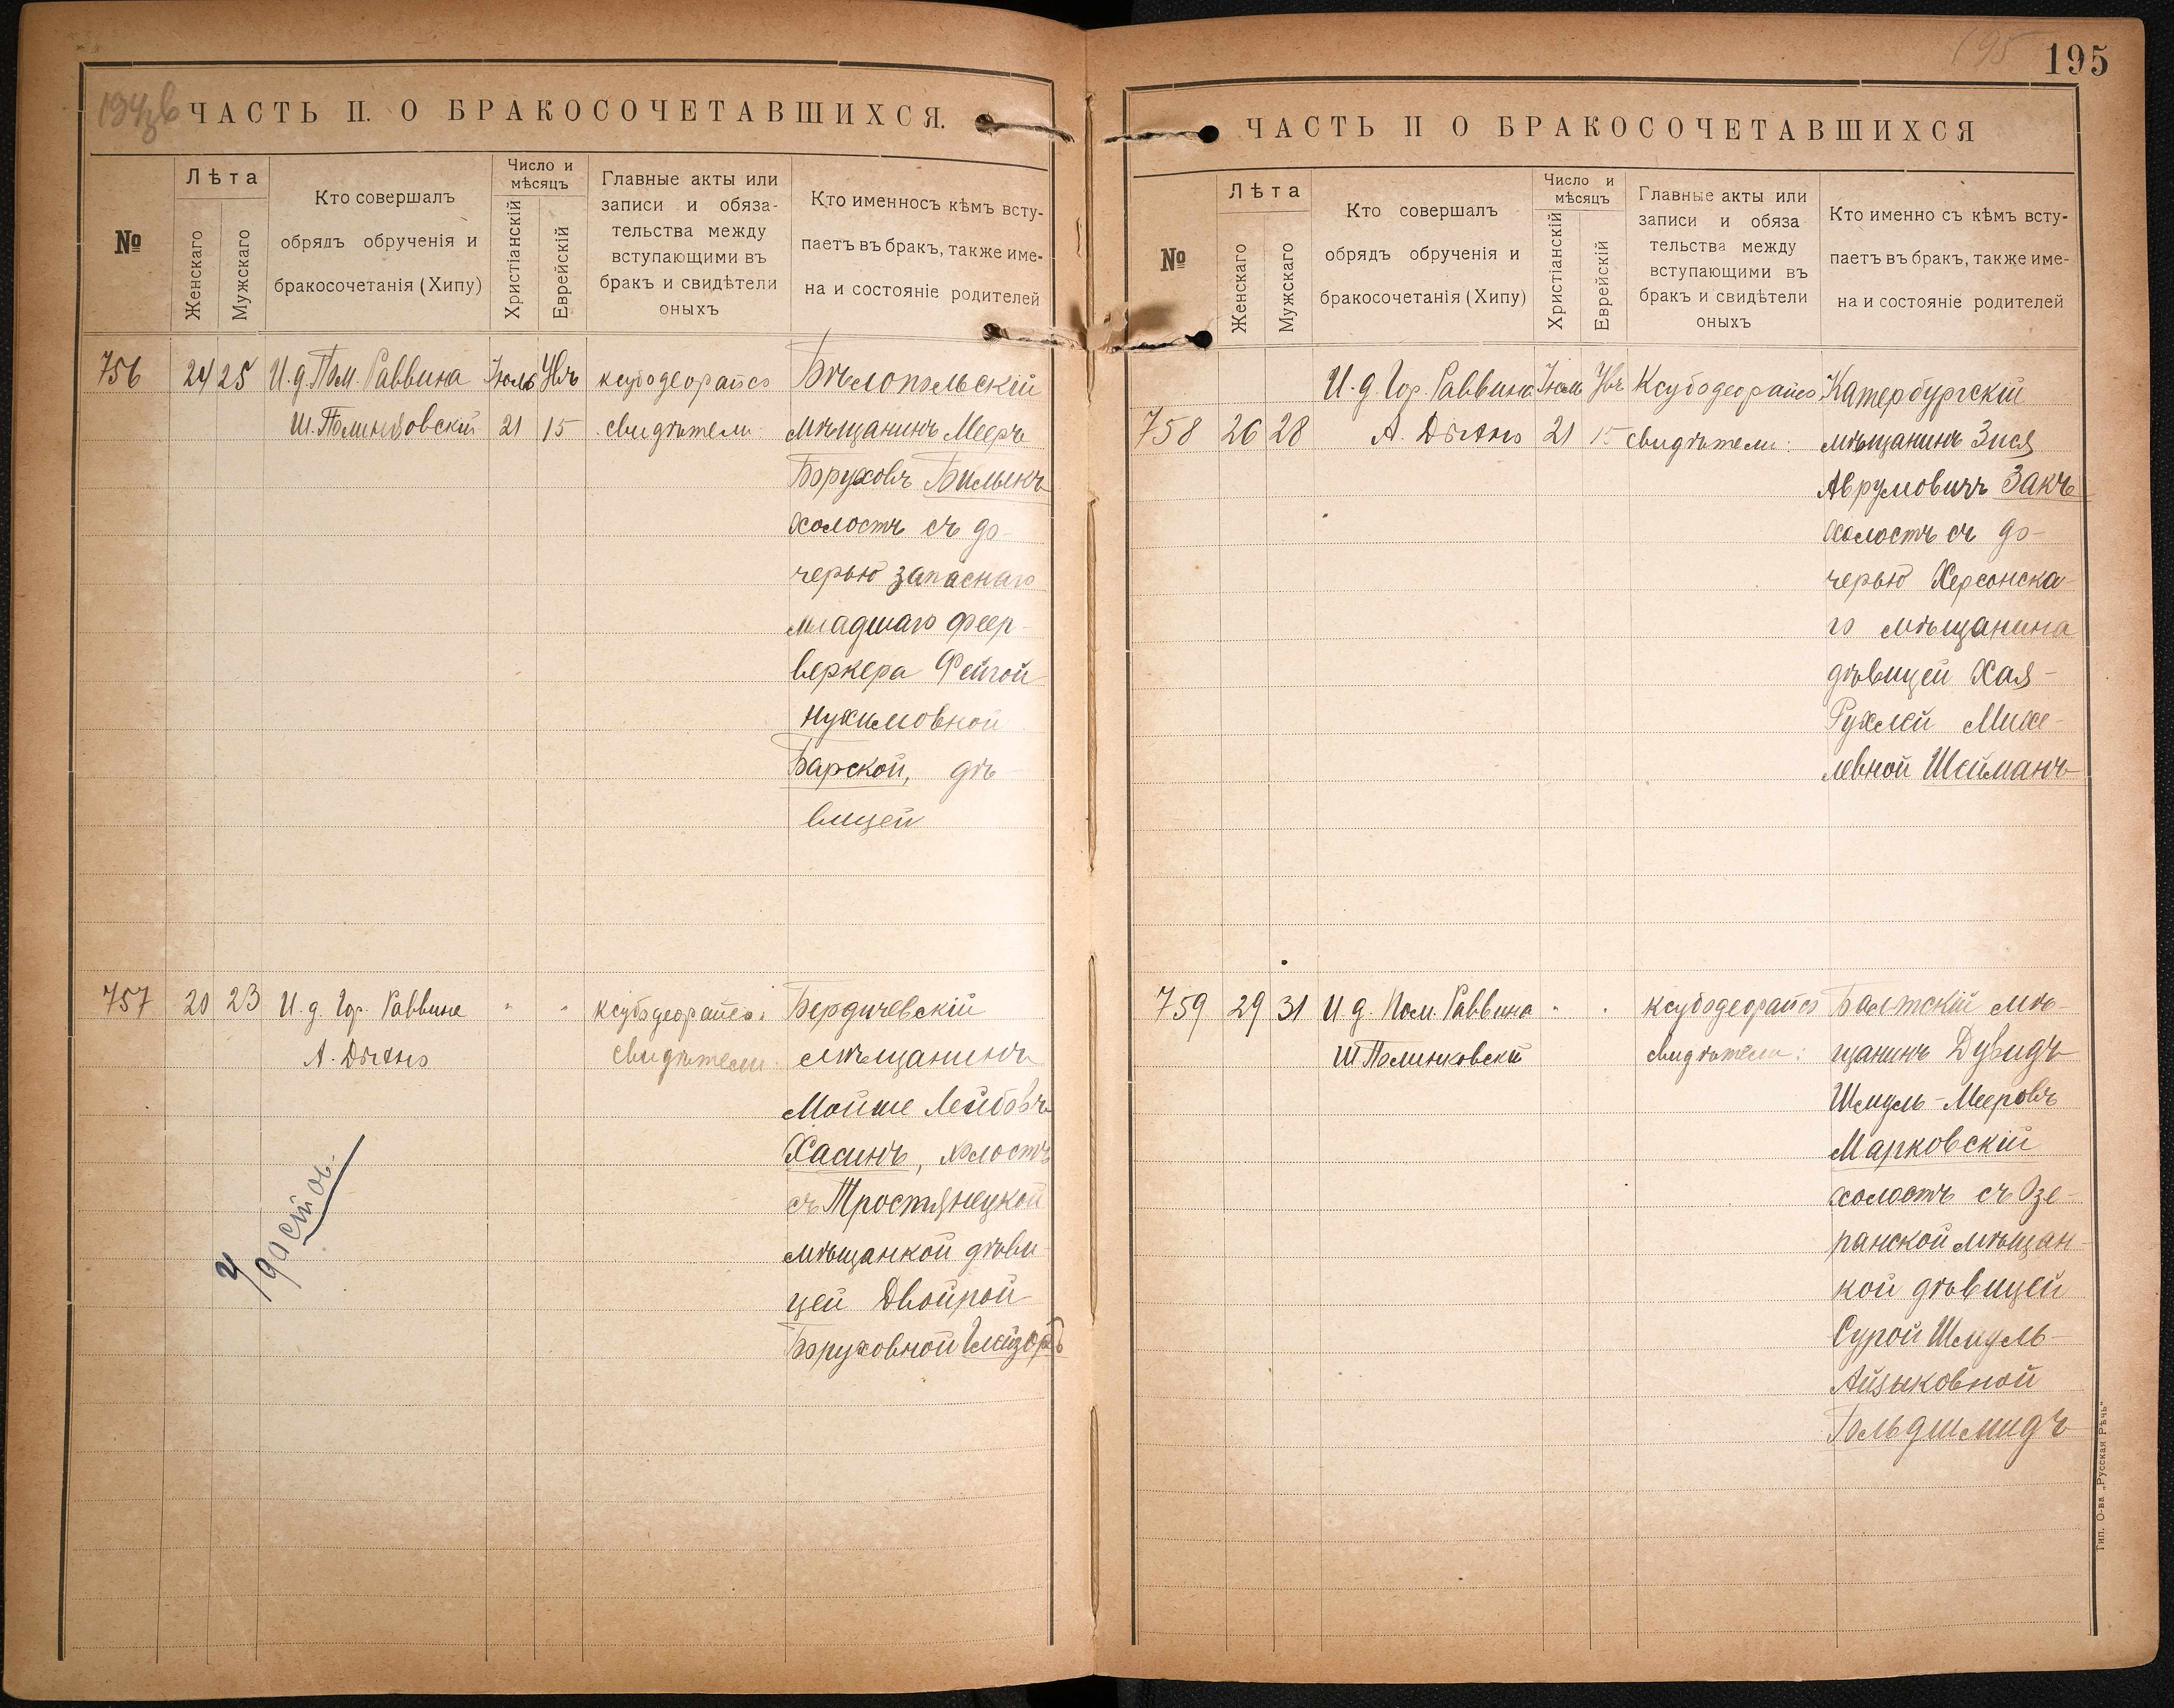 194зв
ЧАСТЬ II. О БРАКОСОЧЕТАВШИХСЯ.
№
Лѣта
Женскаго
Мужскаго
Кто совершалъ
обрядъ обрученія и
бракосочетанія (Хипу)
Число и
мѣсяцъ
Христіанскій
Еврейскій
Главные акты или
записи и обяза-
тельства между
вступающими въ
бракъ и свидѣтели
оныхъ
Кто именносъ кѣмъ всту-
паетъ въ бракъ, также име-
на и состояніе родителей
756 24 25 И. д. Пом. Раввина Іюль
Ш. Полинковскій 21 15 свидѣтели
Бѣлопольскій
мѣщанинъ Мееръ
Боруховъ Бильикъ
холостъ съ до-
черью запаснаго
младшаго феер-
веркера Фейгой
Нухимовной
Барской, дѣ-
вицей
757 20 23 И. д. Гор. Раввина " "
свидѣтели
Бердичевскій
мѣщанинъ
Мойше Лейбовъ
Хасинъ, холостъ
съ Тростянецкой
мѣщанкой дѣви-
цей Двойрой
Боруховной Глейзеръ
195
195
ЧАСТЬ II О БРАКОСОЧЕТАВШИХСЯ
№
Лѣта
Женскаго
Мужскаго
Кто совершалъ
обрядъ обрученія и
бракосочетанія (Хипу)
Число и
мѣсяцъ
Христіанскій
Еврейскій
Главные акты или
записи и обяза
тельства между
вступающими въ
бракъ и свидѣтели
оныхъ
Кто именно съ кѣмъ всту-
паетъ въ бракъ, также име-
на и состояніе родителей
И. д. Гор. Раввина Іюль
758 26 28 21 15 свидѣтели:
Катербургскій
мѣщанинъ Зися
Аврумовичъ Закъ
холостъ съ до-
черью Херсонска-
го мѣщанина
дѣвицей Хая-
Рухлей Михе-
левной Шейманъ
759 29 31 И. д. Пом. Раввина " "
Ш Полинковскій свидѣтели:
Балтскій мѣ-
щанинъ Дувидъ
Шмуль-Мееровъ
Марковскій
холостъ съ Озе-
ранской мѣщан-
кой дѣвицей
Сурой Шмуль-
Айзыковной
Гольдшмидъ
Тип. О-ва „Русская Рѣчь"